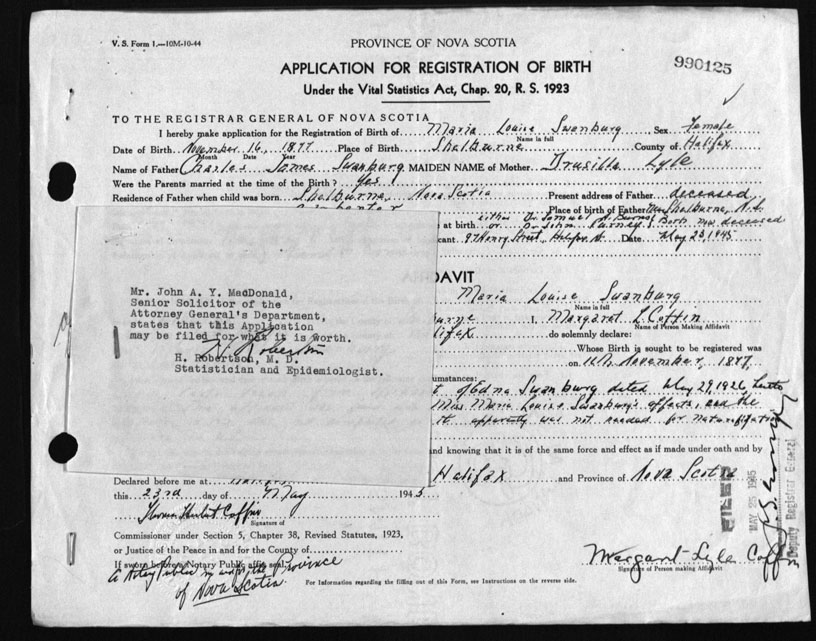 V. S. Form 1.—10M-10-44
PROVINCE OF NOVA SCOTIA
990125
APPLICATION FOR REGISTRATION OF BIRTH
Under the Vital Statistics Act, Chap. 20, R. S. 1923
TO THE REGISTRAR GENERAL OF NOVA SCOTIA
I hereby make application for the Registration of Birth of Maria Louise Swanburg Sex Female
Name in full
Date of Birth November 16, 1877 Place of Birth Shelburne County of Halifax
Month Date Year
Name of Father Charles James Swanburg MAIDEN NAME of Mother Drusilla Lyle
Were the Parents married at the time of the Birth? Yes
Residence of Father when child was born Shelburne, Nova Scotia Present address of Father deceased
Place of birth of Father Shelburne, N.S.
at birth either Dr. Samuel A. Burns or Dr. John Purney Both now deceased
cant 97 Henry Street, Halifax N. Date May 23, 1945
DAVIT
Maria Louise Swanburg
Name in full
urne I, Margaret L Coffin
Name of Person Making Affidavit
lifax do solemnly declare:
Whose Birth is sought to be registered was
on 16th November, 1877.
cumstances:
t of Edna Swanburg dated May 29, 1926,
Miss Maria Louise Swanburg's effects, and the
it apparently was not needed for naturalization
and knowing that it is of the same force and effect as if made under oath and by
Mr. John A. Y. MacDonald,
Senior Solicitor of the
Attorney General's Department,
states that this Application
may be filed for what it is worth.
H. Robertson
H. Robertson, M. D.
Statistician and Epidemiologist.
Declared before me at Halifax and Province of Nova Scotia
this 23rd day of May 1945
Signature of
FILED
MAY 25 1945
Deputy Registrar General
Commissioner under Section 5, Chapter 38, Revised Statutes, 1923,
or Justice of the Peace in and for the County of
If sworn before a Notary Public affix seal.
A Notary Public in and for the Province
of Nova Scotia.
Margaret Lyle Coffin
Signature of Person making Affidavit
For Information regarding the filling out of this Form, see Instructions on the reverse side.